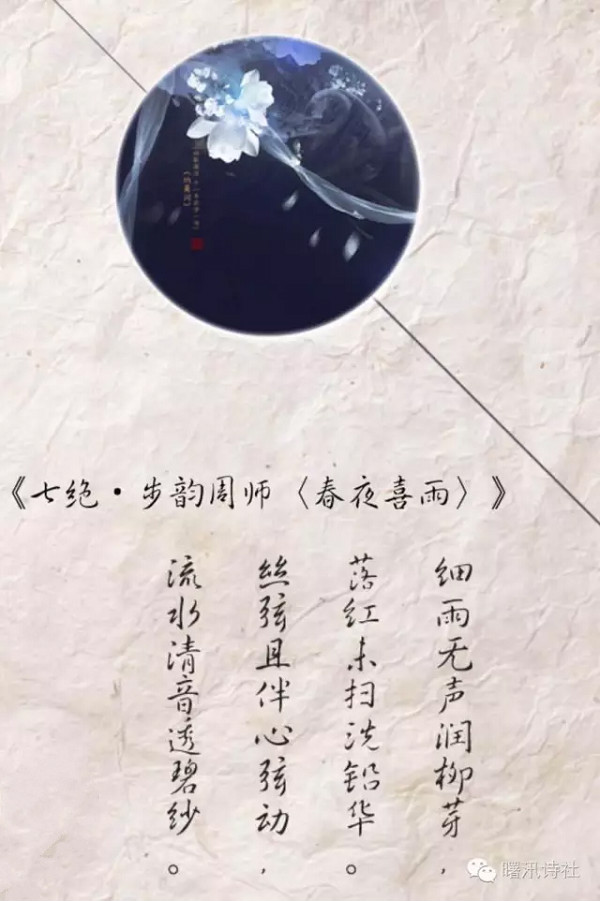 《七绝·步韵周师〈春夜喜雨〉》
细雨无声润柳芽，
落红未扫洗铅华。
丝弦且伴心弦动，
流水清音透碧纱。
曙汛诗社